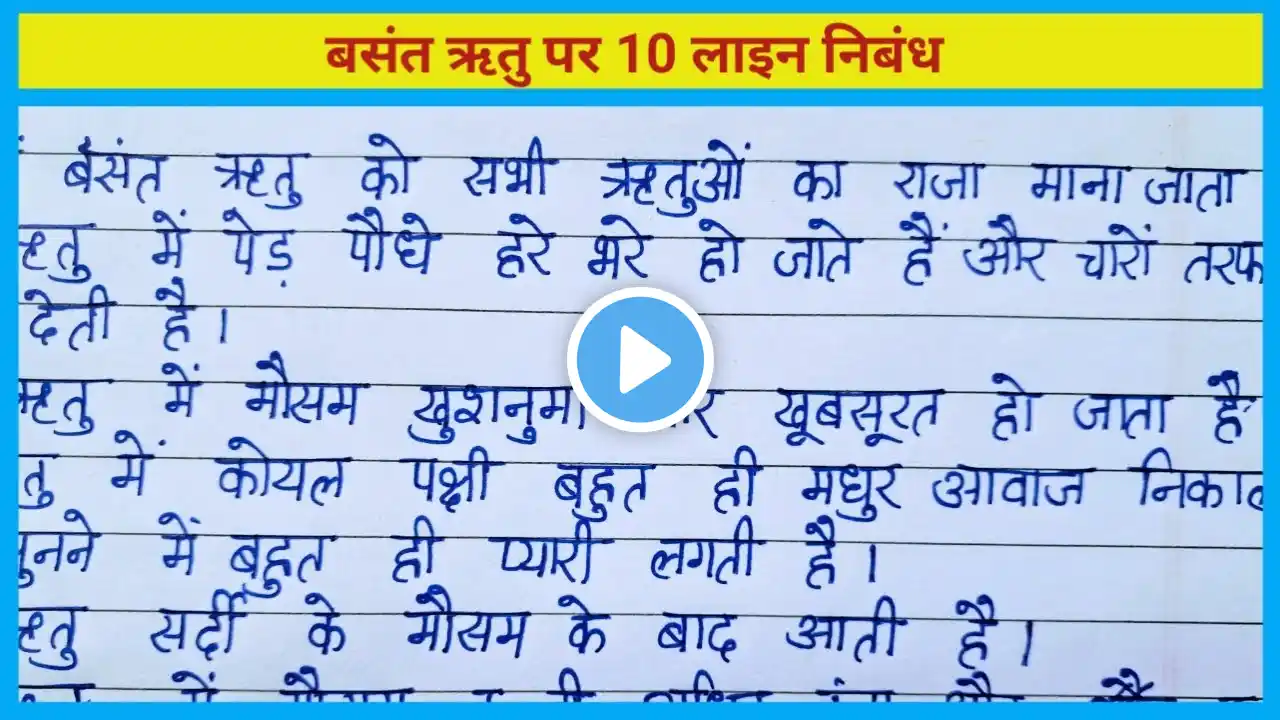 बसंत ऋतु पर 10 लाइन निबंध
बसंत ऋतु को सभी ऋतुओं का राजा माना जाता
में पेड़ पौधे हरे भरे हो जाते हैं और चारों तरफ
देती है।
में मौसम खुशनुमा खूबसूरत हो जाता है
में कोयल पक्षी बहुत ही मधुर आवाज
में बहुत ही प्यारी लगती है।
सर्दी के मौसम के बाद आती है।